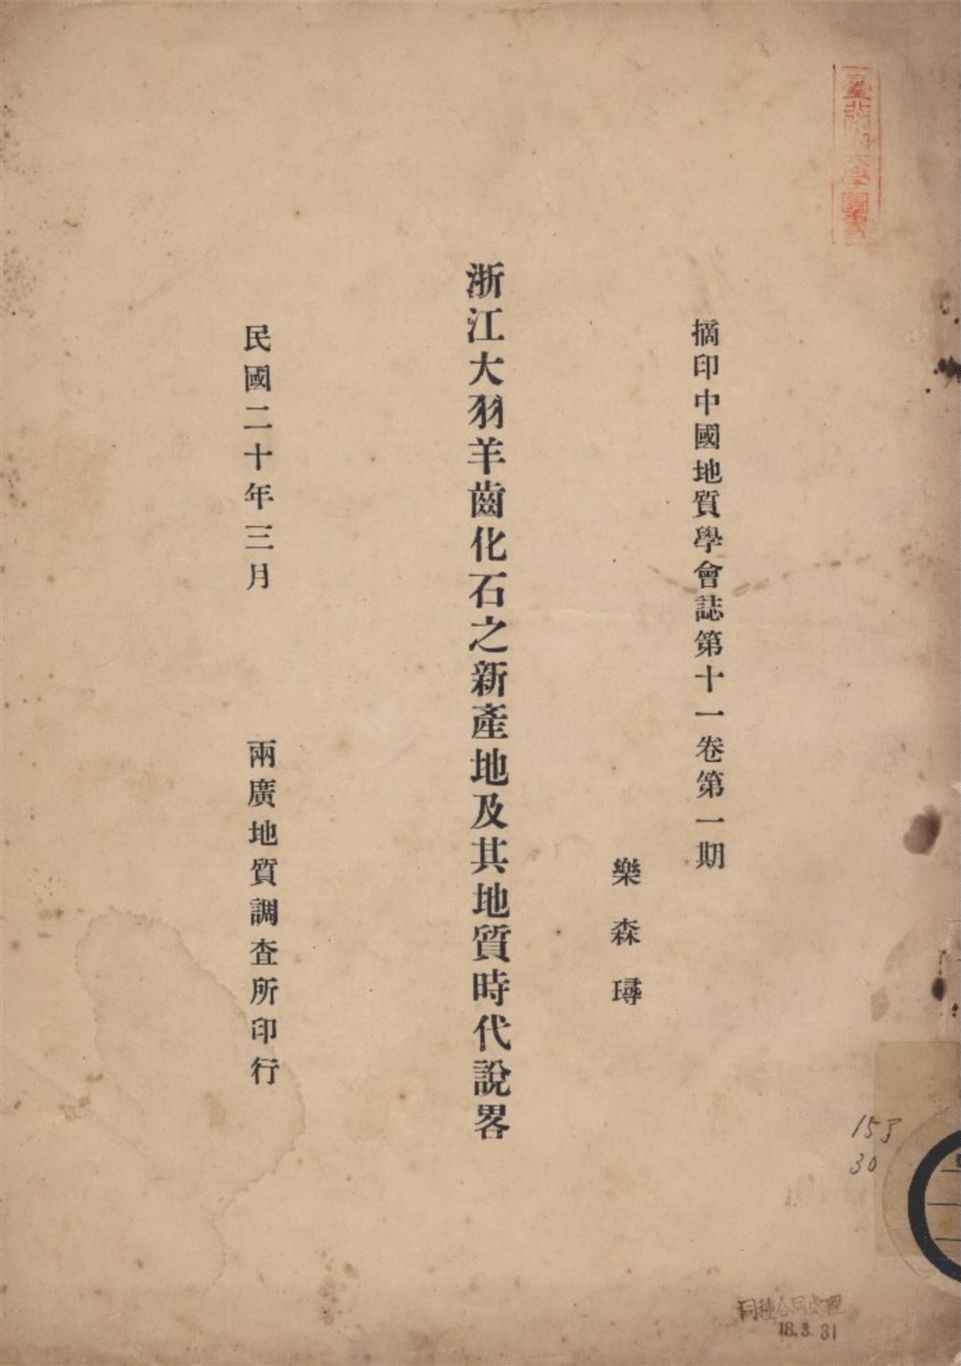 臺北帝國大學圖書
摘印中國地質學會誌第十一卷第一期
樂森璕
浙江大羽羊齒化石之新產地及其地質時代說畧
民國二十年三月 兩廣地質調查所印行
153
30
18.3.31